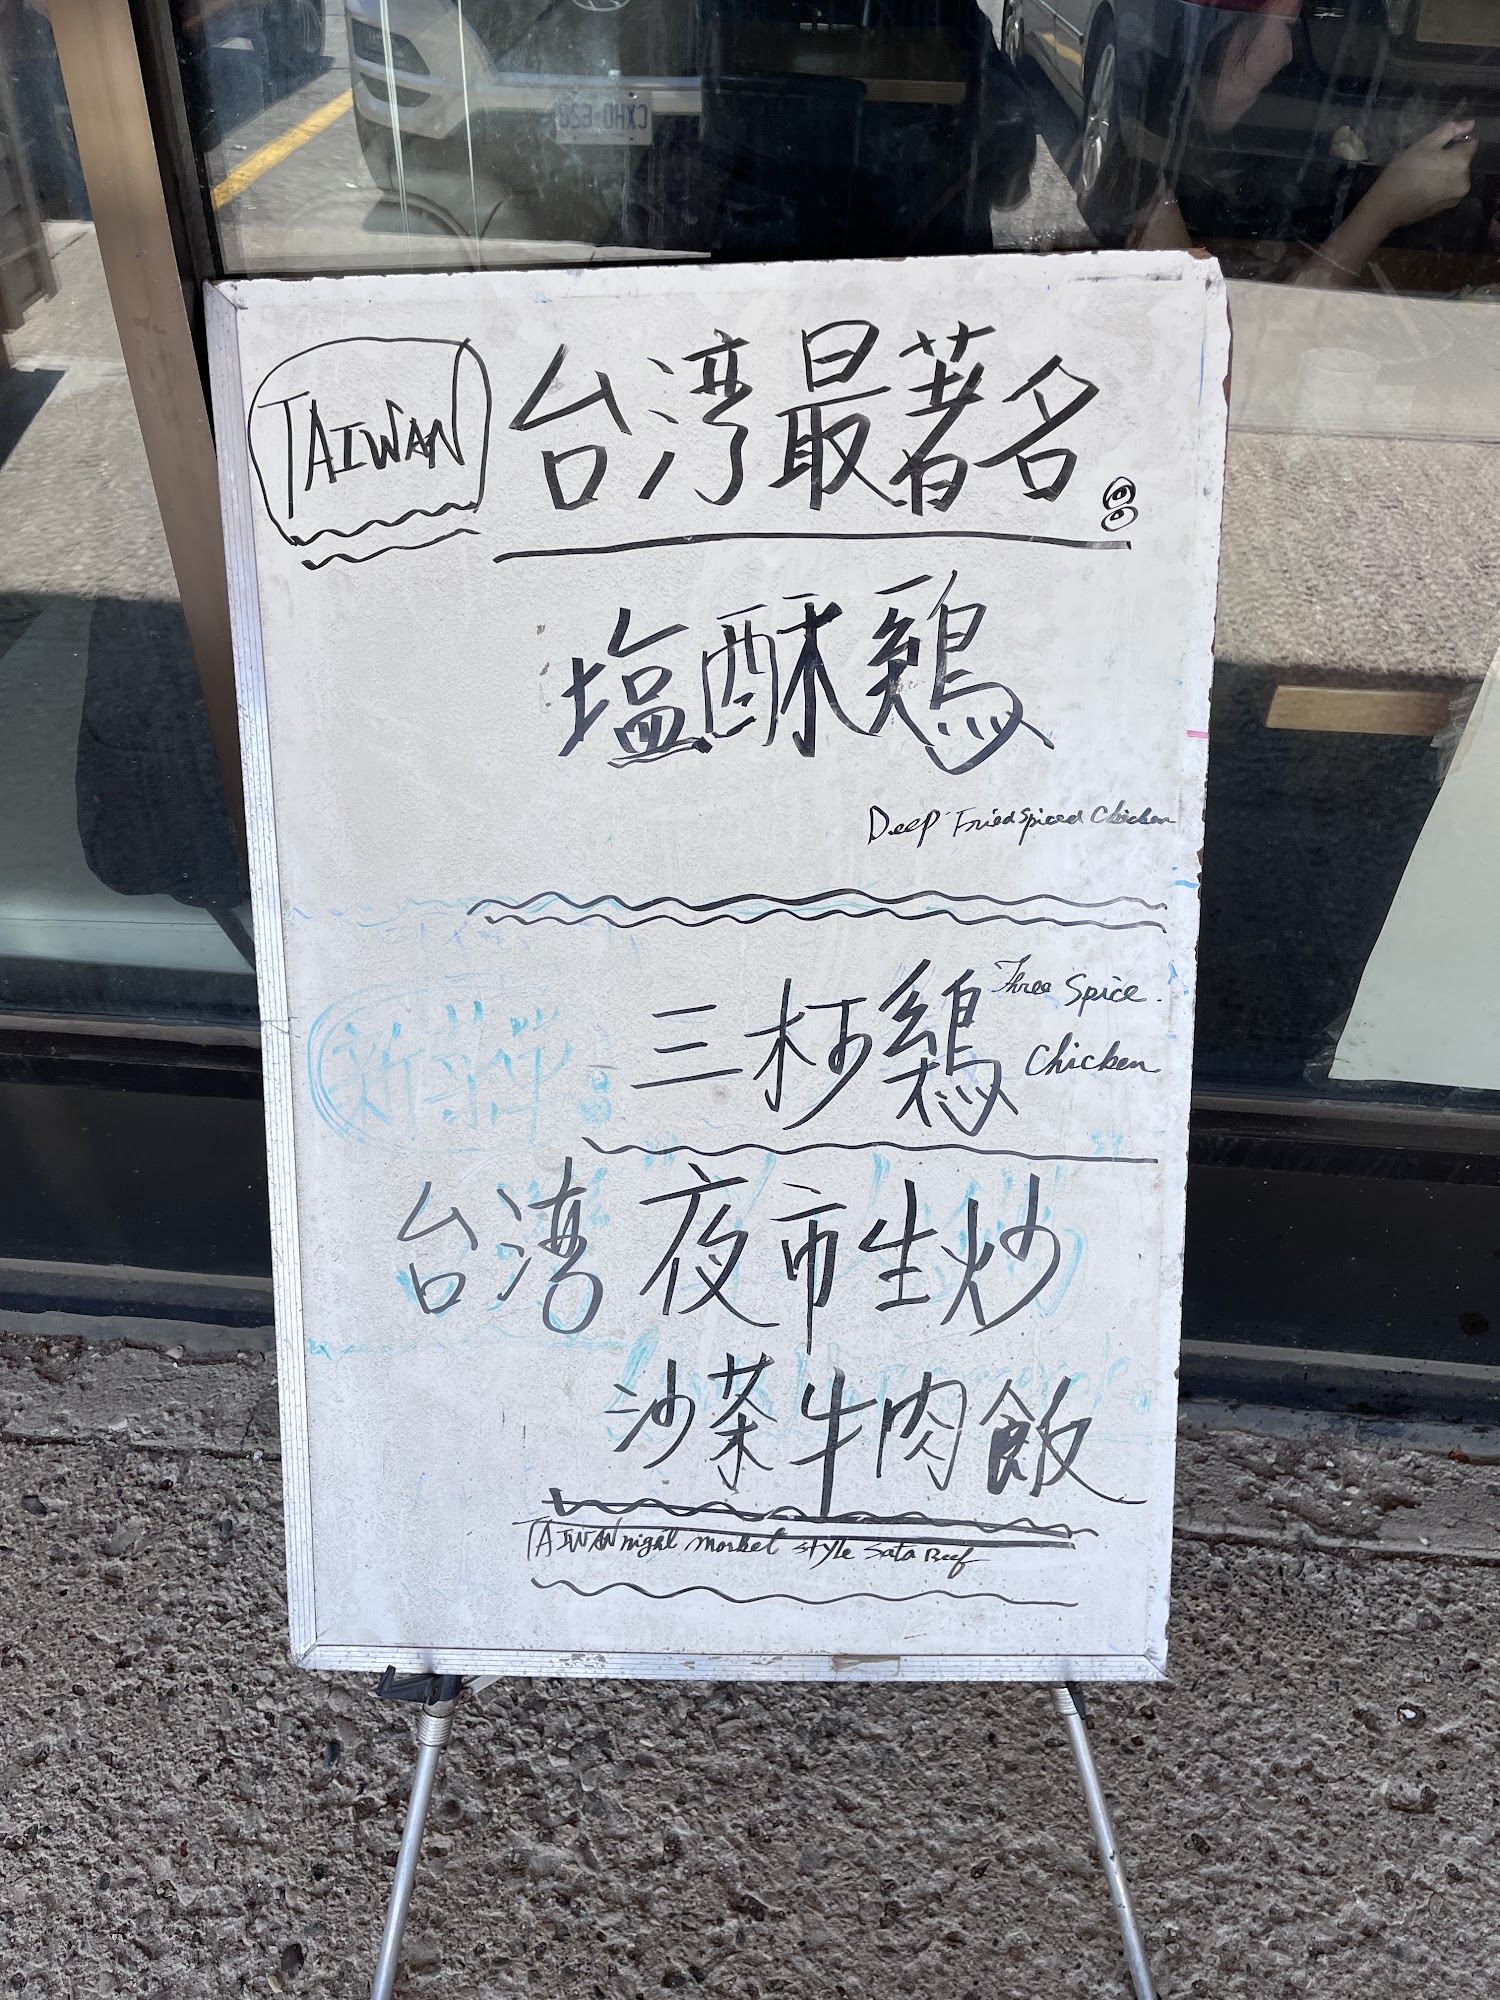 TAIWAN 台湾最著名:
塩酥鷄
Deep Fried Spiced Chicken
三杯鷄 Three Spice Chicken
新菜单:
台湾 夜市生炒
沙茶牛肉飯
TAIWAN night market style Sata Beef